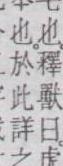 也。釋獸曰虎
也。於此詳之